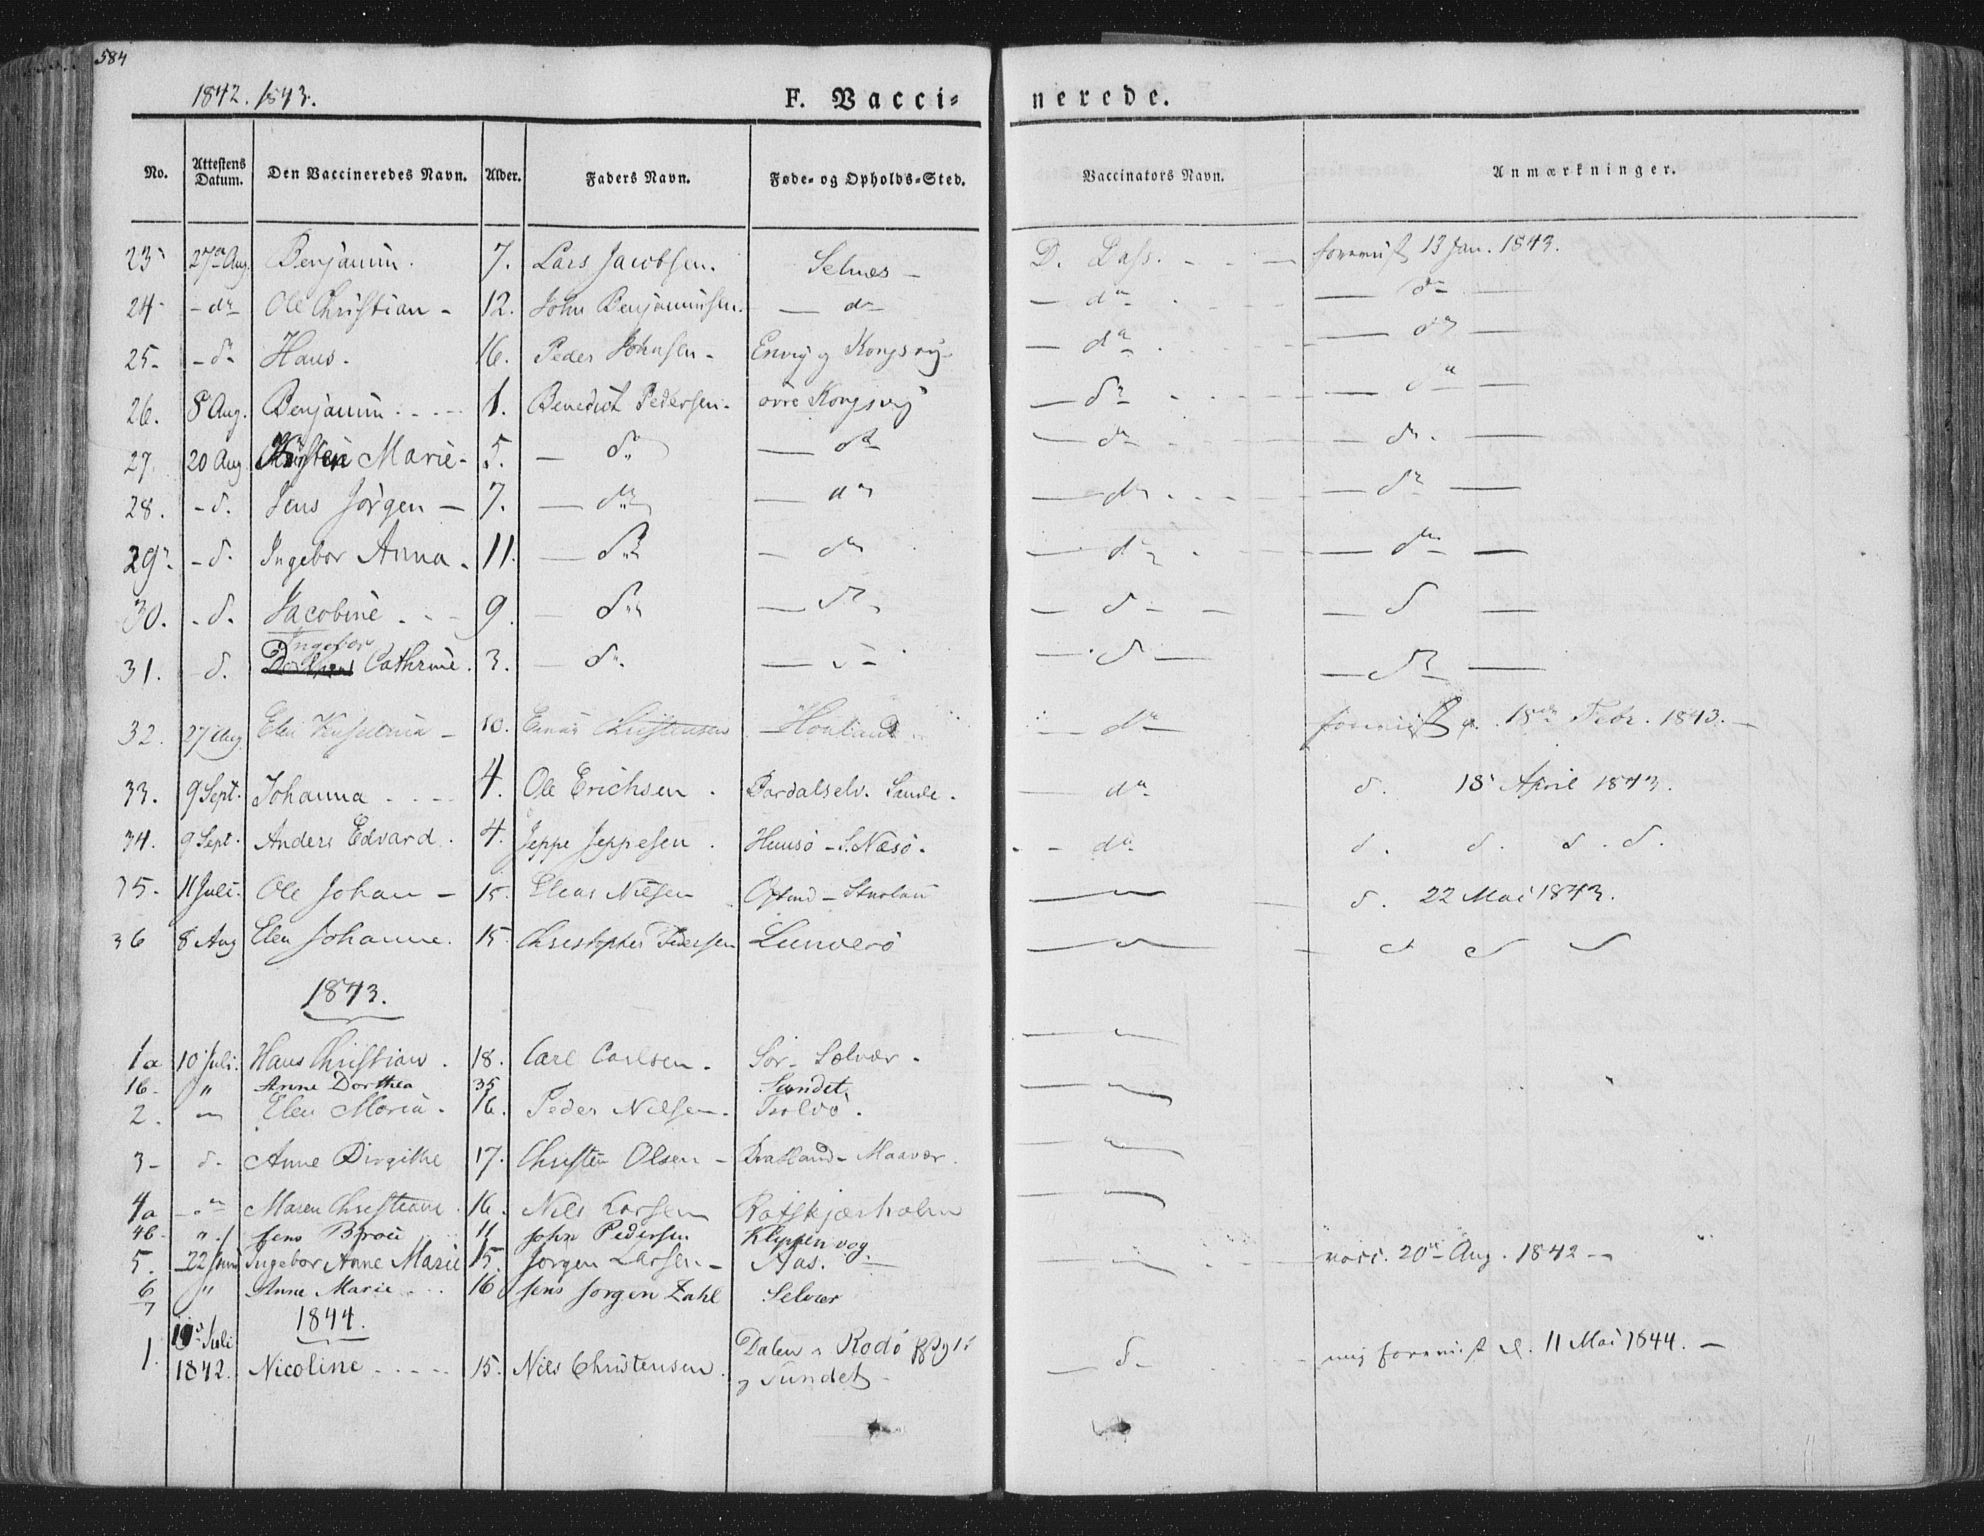 584
1842. 1843.
F. Vacci= nerede.
No. Attestens Datum. Den Vaccineredes Navn. Alder. Faders Navn. Føde- og Opholds-Sted. Vaccinators Navn. Anmærkninger.
23 27de Aug. Benjamin. 7. Lars Jacobsen. Selnes - D. Dass. - - - forevist 13 Jan. 1843.
24 - do Ole Christian - 12. John Benjaminsen. — do — do — do —
25. - do Hans. 16. Peder Johnsen - Envig og Kongsvig — do — do —
26. 8 Aug. Benjamin. - - - 1. Benedict Pedersen. øvre Kongsvig — do — do —
27. 20 Aug Marie - 5. — do — do — do — do. —
28. - d. Jens Jørgen - 7. — do — do — do — do —
29. - d. Ingebor Anna. 11. — do — do — do — do —
30. - d. Jacobine. - - 9. — do — do — d - — d —
31. - d. Ingebor Cathrine. 3. — do — d - — d — do —
32. 27 Aug Elen - 10. Christensen — do forevist 18de Febr. 1843. -
33. 9 Sept. Johanna. - - - 4. Ole Erichsen. Bardalselv. Sande. do d. 18 April 1843.
34. 9 Sept. Anders Edvard. 4. Jeppe Jeppesen. Huusø - S. Næsø. - - do d. d. d. d.
35. 11 Juli. Ole Johan - 15. Elias Nilsen — d. 22 Mai 1843.
36 8 Aug Elen Johanne. 15. Christopher Pedersen Lunderø — d d d
1843.
1a 10 Juli. Hans Christian. 18. Carl Carlsen. Sør - Selvær.
1b. " Anne Dorthea 35 Sundet.
2. " Elen Maria. 16. Peder Nilsen. Trolvø.
3 - d. Anne Birgithe 17. Christen Olsen - Bratland - Maavær.
4a - " Maren Christiane. 16. Nils Larsen Rotskjærholm
4b. " Jens 11 John Pedersen Klippenvog
5. 22 Juni Ingebor Anne Marie 15. Jørgen Larsen - Aas. vacc. 20de Aug. 1842 -
6 " Anne Marie. - - 16 Jens Jørgen Zahl Selvær
7
1844.
1. 10 Juli 1842. Nicoline - - - - 15. Nils Christensen. Dalen i Rodø
og Sundet - — d. - mig forevist d. 11 Mai 1844. -